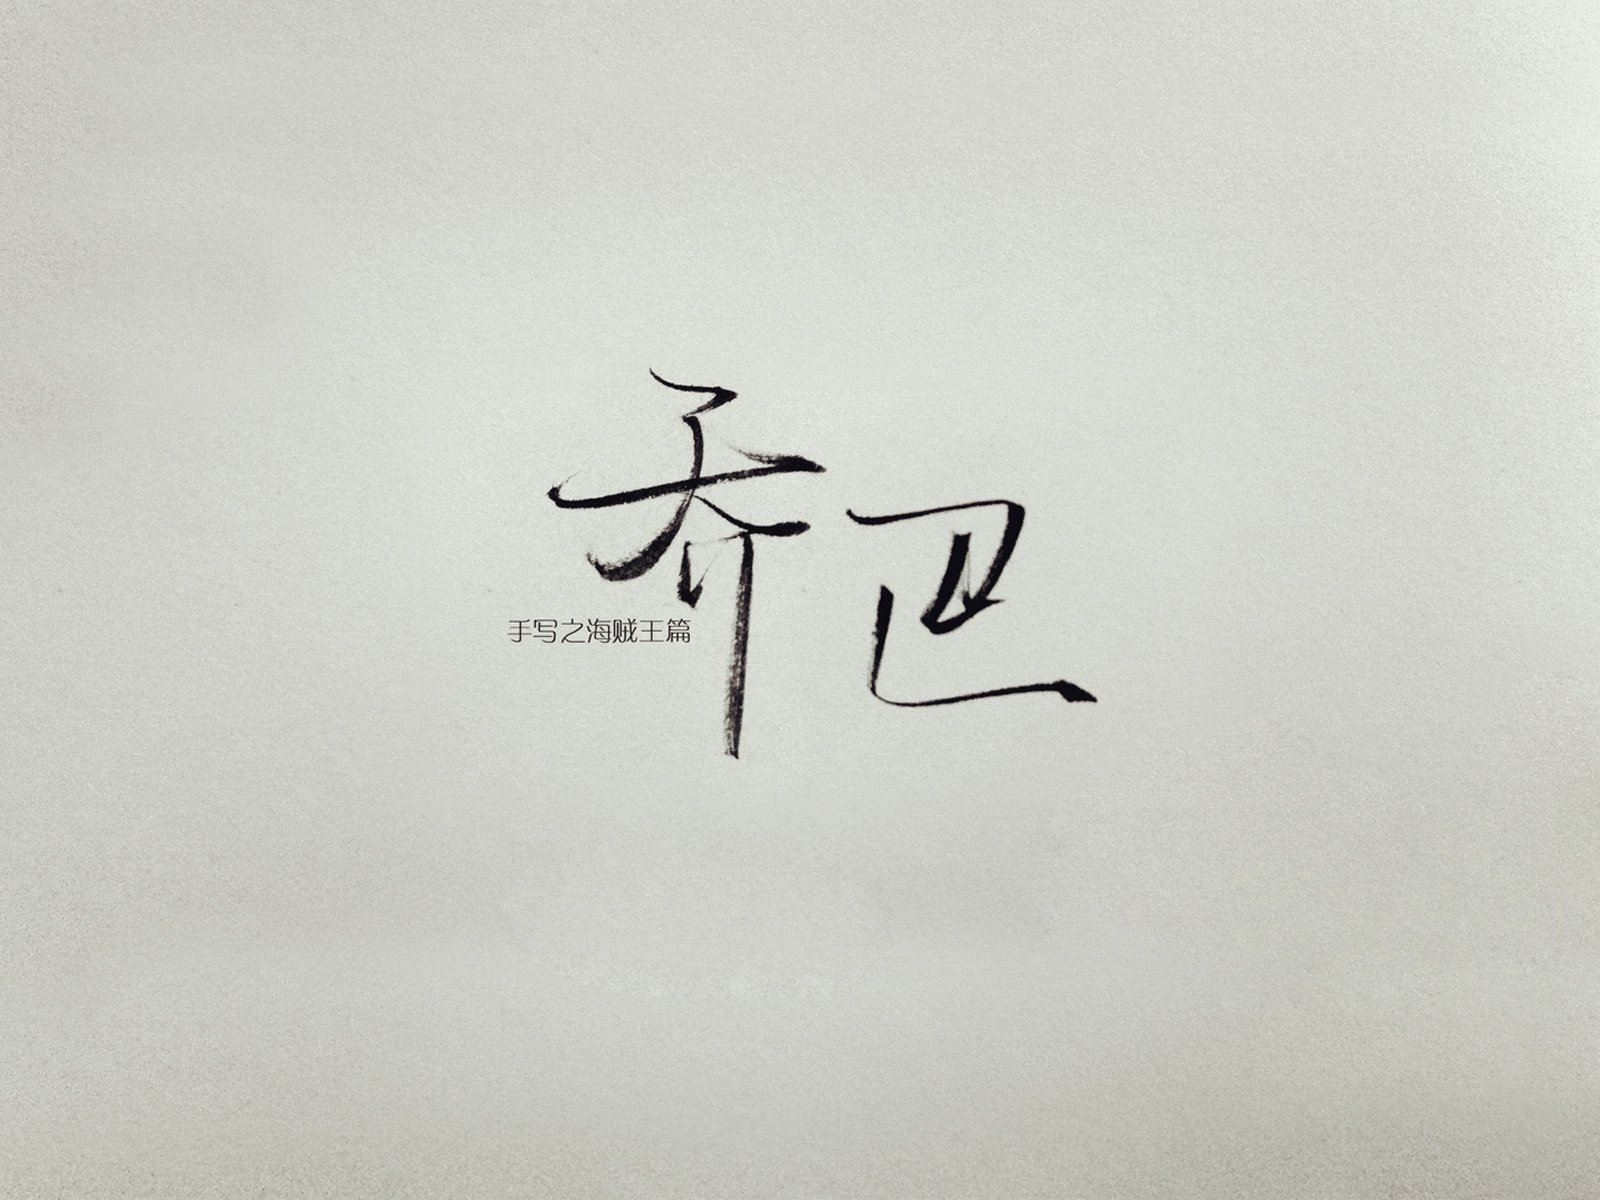 乔巴
手写之海贼王篇